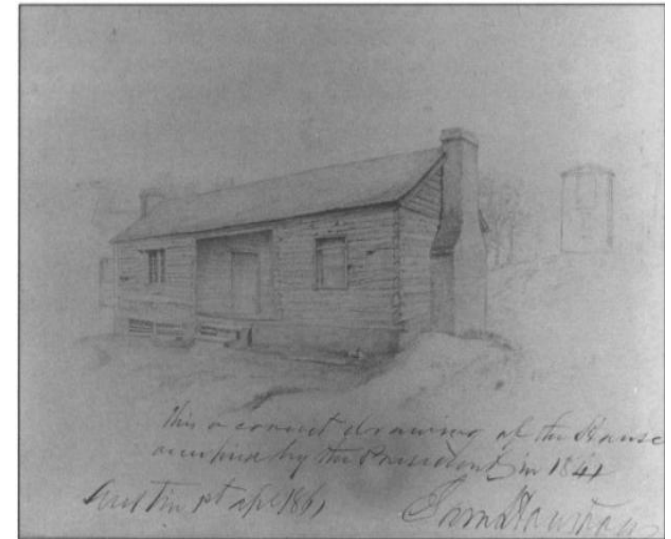 this a correct drawing of the House
occupied by the President in 1841
Austin 1st apl 1861
Sam Houston